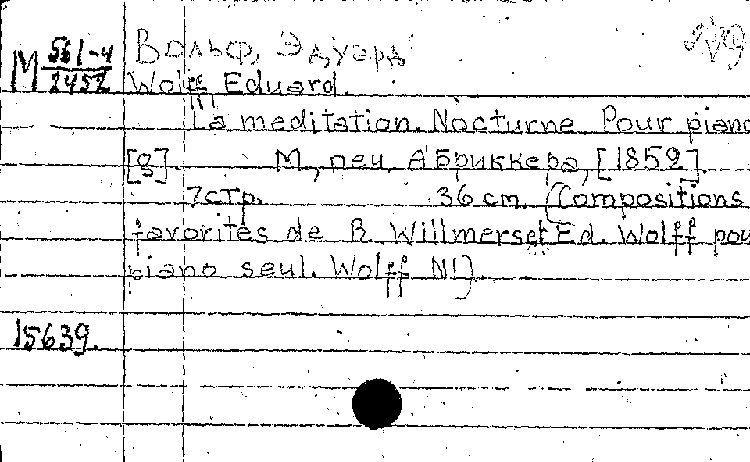 М 561-4
2452
Вольф, Эдуард
Wolff Eduard.
La meditation. Nocturne Pour piano
[g]. М., печ. А Бриккера, [1852].
7 стр. 36 cm. (Compositions
favorites de R. Willmerset Ed. Wolff pou
piano seul. Wolff N1)
15639.